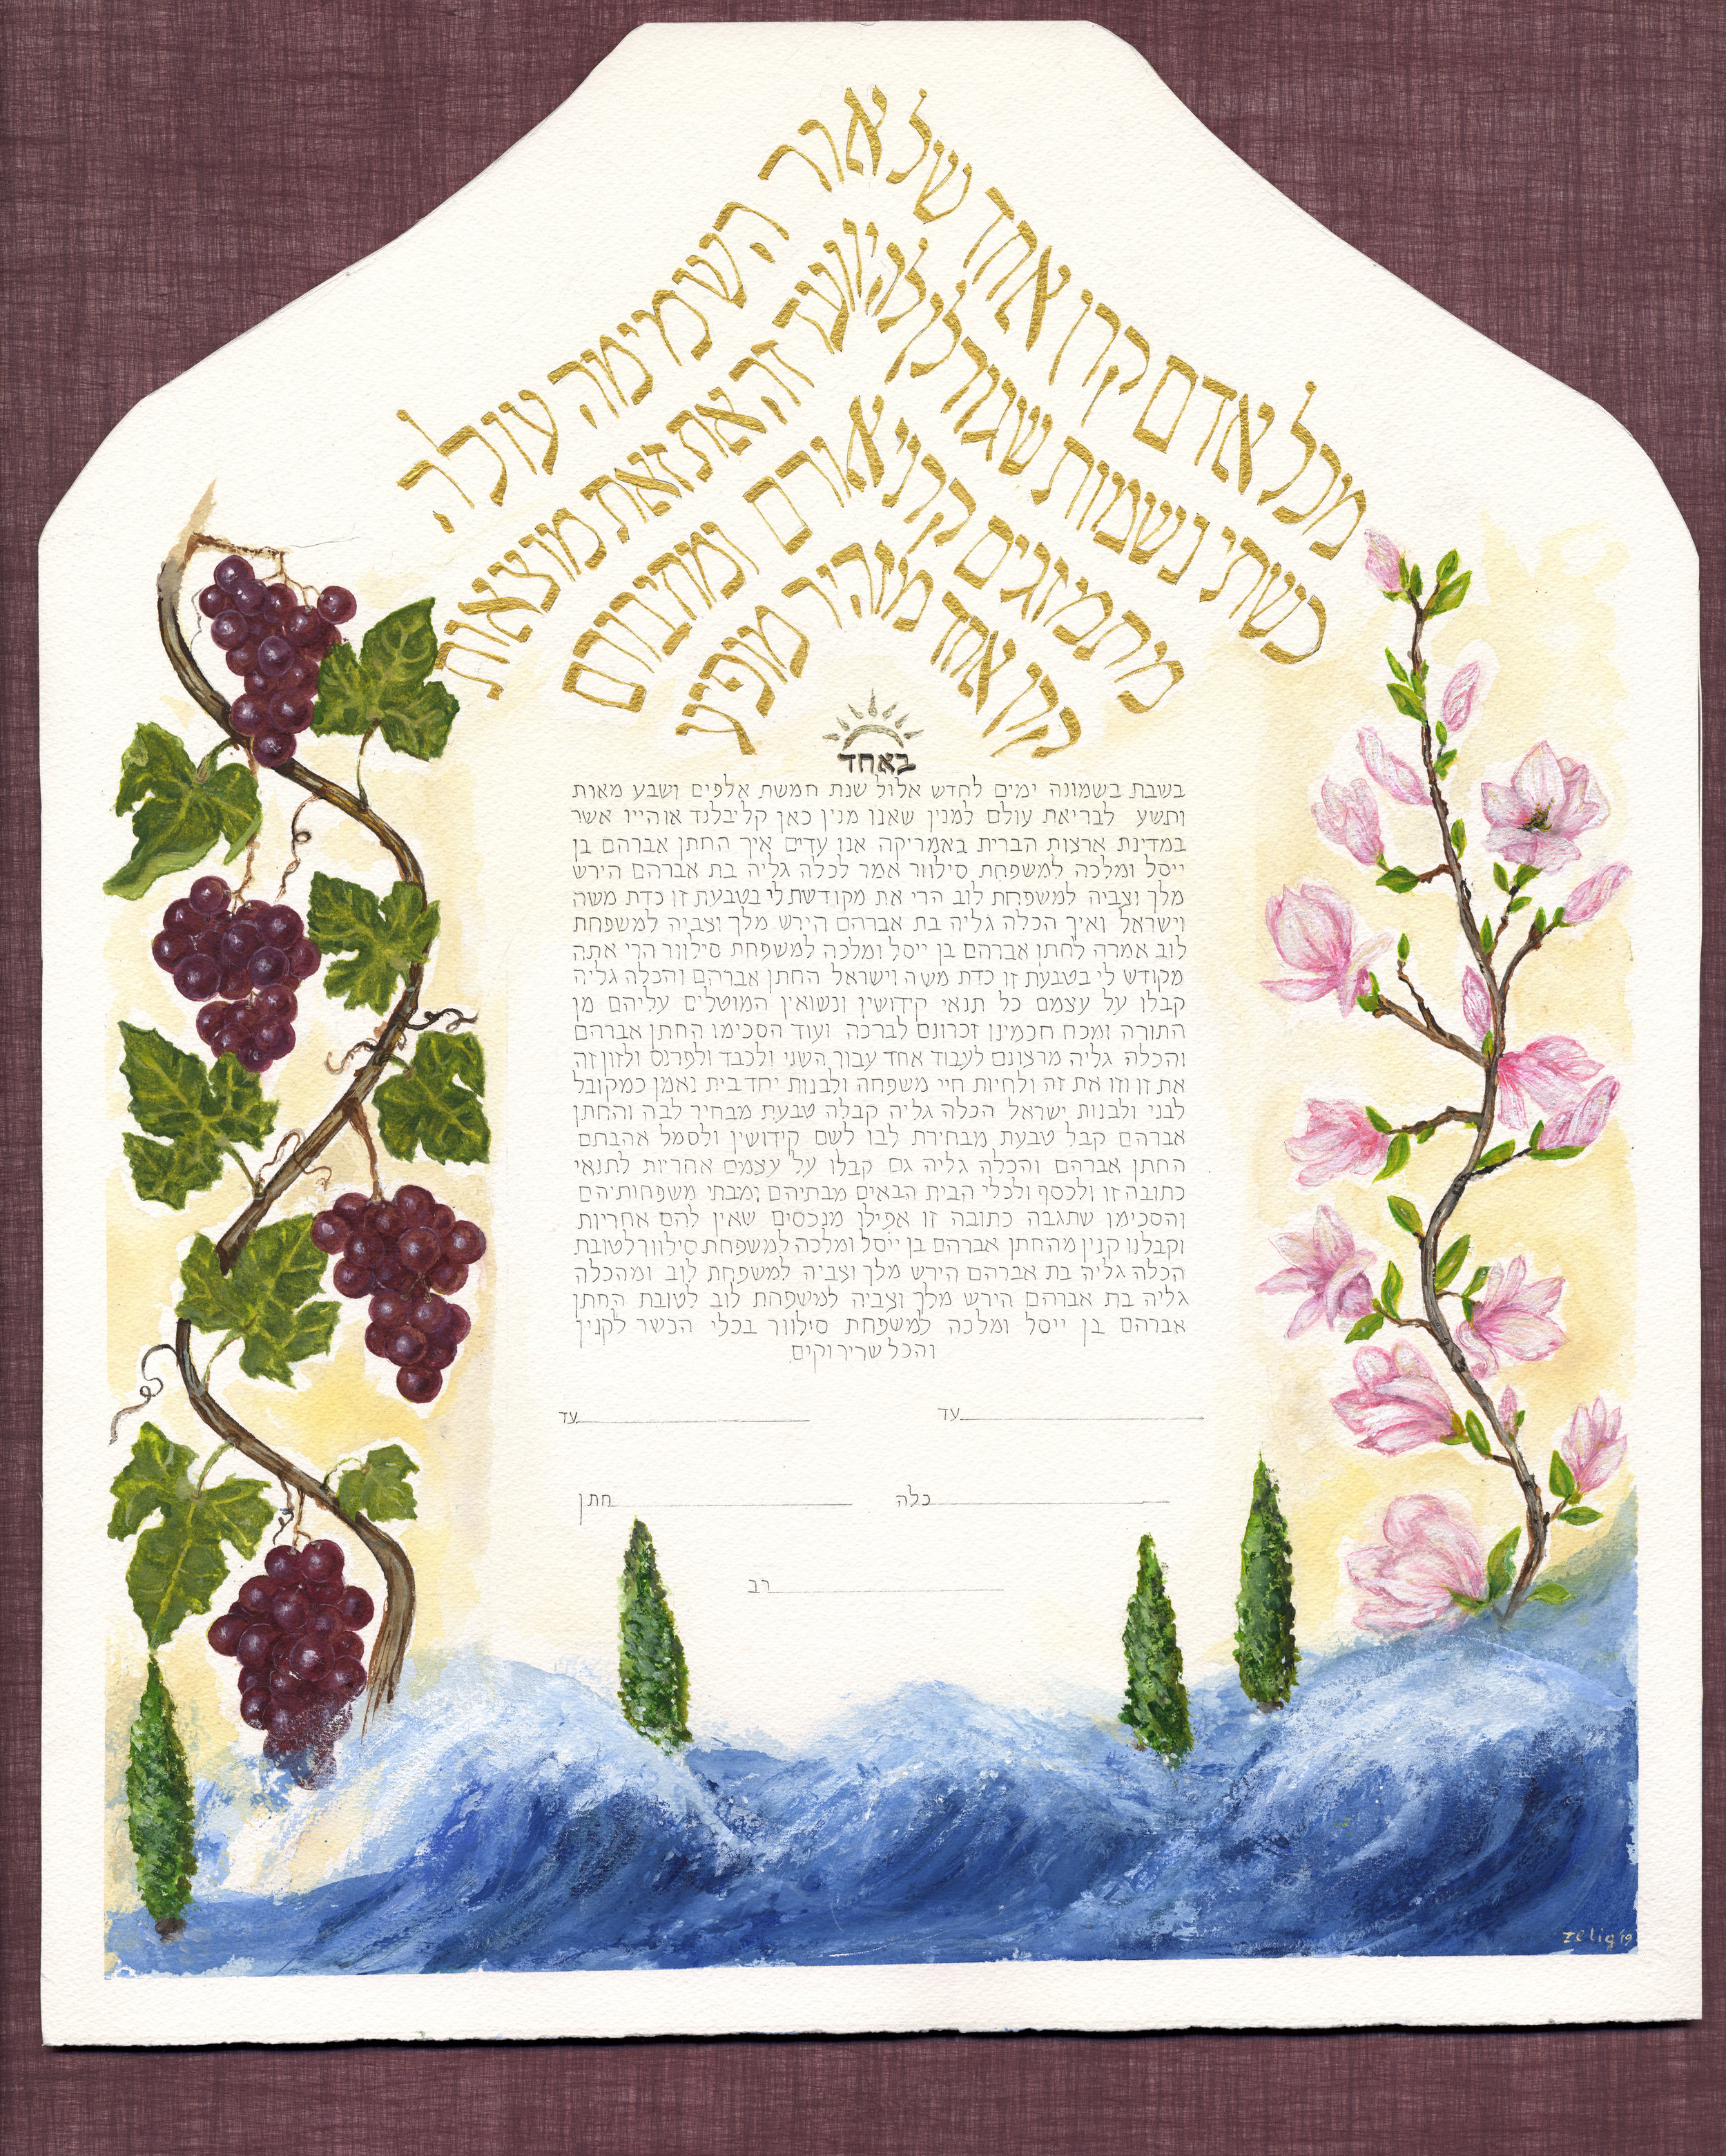 מכל אדם קרן אחד של אור השמימה עולה
כשתי נשמות שגורלן להיוועד זה את זאת מוצאות
מתמזגים קרני אורם ומחברם
קרן אחד מזהיר מופיע
באחד
בשבת בשמונה ימים לחדש אלול שנת חמשת אלפים ושבע מאות
ותשע לבריאת עולם למנין שאנו מנין כאן קליבלנד אוהייו אשר
במדינת ארצות הברית באמריקה אנו עדים איך החתן אברהם בן
ייסל ומלכה למשפחת סילוור אמר לכלה גליה בת אברהם הירש
מלך וצביה למשפחת לוב הרי את מקודשת לי בטבעת זו כדת משה
וישראל ואיך הכלה גליה בת אברהם הירש מלך וצביה למשפחת
לוב אמרה לחתן אברהם בן ייסל ומלכה למשפחת סילוור הרי אתה
מקודש לי בטבעת זו כדת משה וישראל החתן אברהם והכלה גליה
קבלו על עצמם כל תנאי קידושין ונשואין המוטלים עליהם מן
התורה ומכח חכמינו זכרונם לברכה ועוד הסכימו החתן אברהם
והכלה גליה מרצונם לעבוד אחד עבור השני ולכבד ולפרנס ולזון זה
את זו וזו את זה ולחיות חיי משפחה ולבנות יחד בית נאמן כמקובל
לבני ולבנות ישראל הכלה גליה קבלה טבעת מבחיר לבה והחתן
אברהם קבל טבעת מבחירת לבו לשם קידושין ולסמל אהבתם
החתן אברהם והכלה גליה גם קבלו על עצמם אחריות לתנאי
כתובה זו ולכסף ולכלי הבית הבאים מבתיהם ומבתי משפחותיהם
והסכימו שתגבה כתובה זו אפילו מנכסים שאין להם אחריות
וקבלנו קנין מהחתן אברהם בן ייסל ומלכה למשפחת סילוור לטובת
הכלה גליה בת אברהם הירש מלך וצביה למשפחת לוב ומהכלה
גליה בת אברהם הירש מלך וצביה למשפחת לוב לטובת החתן
אברהם בן ייסל ומלכה למשפחת סילוור בכלי הכשר לקנין
והכל שריר וקים
עד עד
כלה חתן
רב
zelig '19